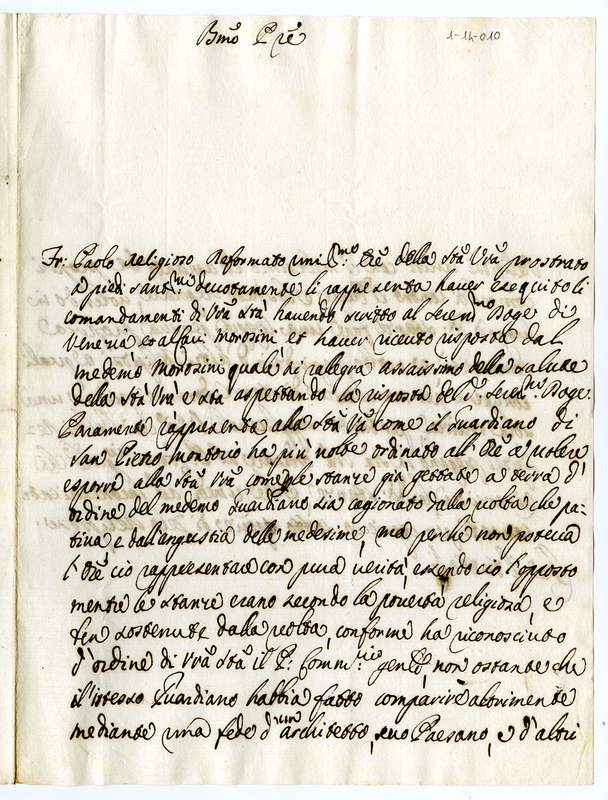 Bmõ Prẽ
1-14-010
Fr: Paolo religioso Reformato umilmo: Orẽ della Stã Vrã prostrato
a piedi santmi: devotamente li rappresenta haver esequito li
comandamenti di Vrã Stã havendo scritto al Serenmo Doge di
Venezia et al Cav: Morosini et haver ricevto risposta dal
medemo Morosini quale si ralegra assaissimo della salute
della Stã Vrã e sta aspettando la risposta del Serenmo Doge.
Paramente rappresenta alla Stã Vrã come il Guardiano di
San Pietro montorio ha più volte ordinato all' Orẽ a volere
esporre alla Stã Vrã come le stanze già gettate a terra d'
ordine del medemo Guardiano sia cagionato dalla volta che pa-
tiva e dall'angustia delle medesime, ma perche non poteva
l'Orẽ ciò rappresentare con pura verità, essendo ciò l'opposto
mentre le stanze erano secondo la povertà religiosa, e
ben sostenute dalla volta, conforme ha riconosciuto
d'ordine di Vrã Stã il P: Commrio: genlẽ non ostante che
il'istesso Guardiano habbia fatto comparire altrimente
mediante una fede d'un architetto, suo Paesano, e d'altri